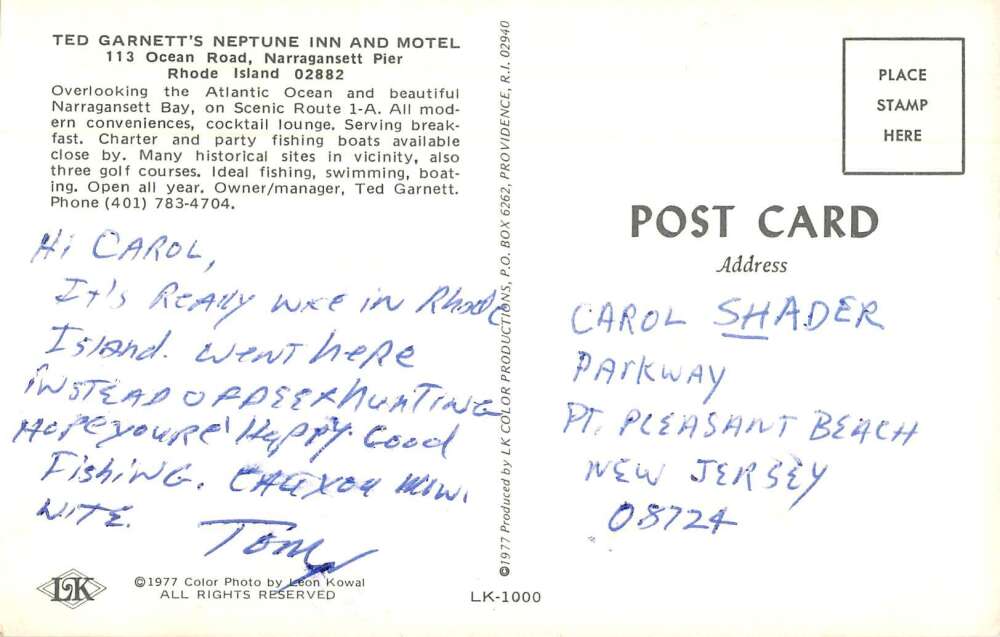 TED GARNETT'S NEPTUNE INN AND MOTEL
113 Ocean Road, Narragansett Pier
Rhode Island 02882
Overlooking the Atlantic Ocean and beautiful
Narragansett Bay, on Scenic Route 1-A. All mod-
ern conveniences, cocktail lounge. Serving break-
fast. Charter and party fishing boats available
close by. Many historical sites in vicinity, also
three golf courses. Ideal fishing, swimming, boat-
ing. Open all year. Owner/manager, Ted Garnett.
Phone (401) 783-4704.
Hi CAROL,
It's Really nice in Rhode
Island. went here
iNSTEAD OF DEER HUNTING
HOPE you're HAPPY. Good
FishiNG.
NITE.
Tom
LK
©1977 Color Photo by Leon Kowal
ALL RIGHTS RESERVED
©1977 Produced by LK COLOR PRODUCTIONS, P.O. BOX 6262, PROVIDENCE, R.I. 02940
LK-1000
PLACE
STAMP
HERE
POST CARD
Address
CAROL SHADER
PARKWAY
PT. PLEASANT BEACH
NEW JERSEY
08724